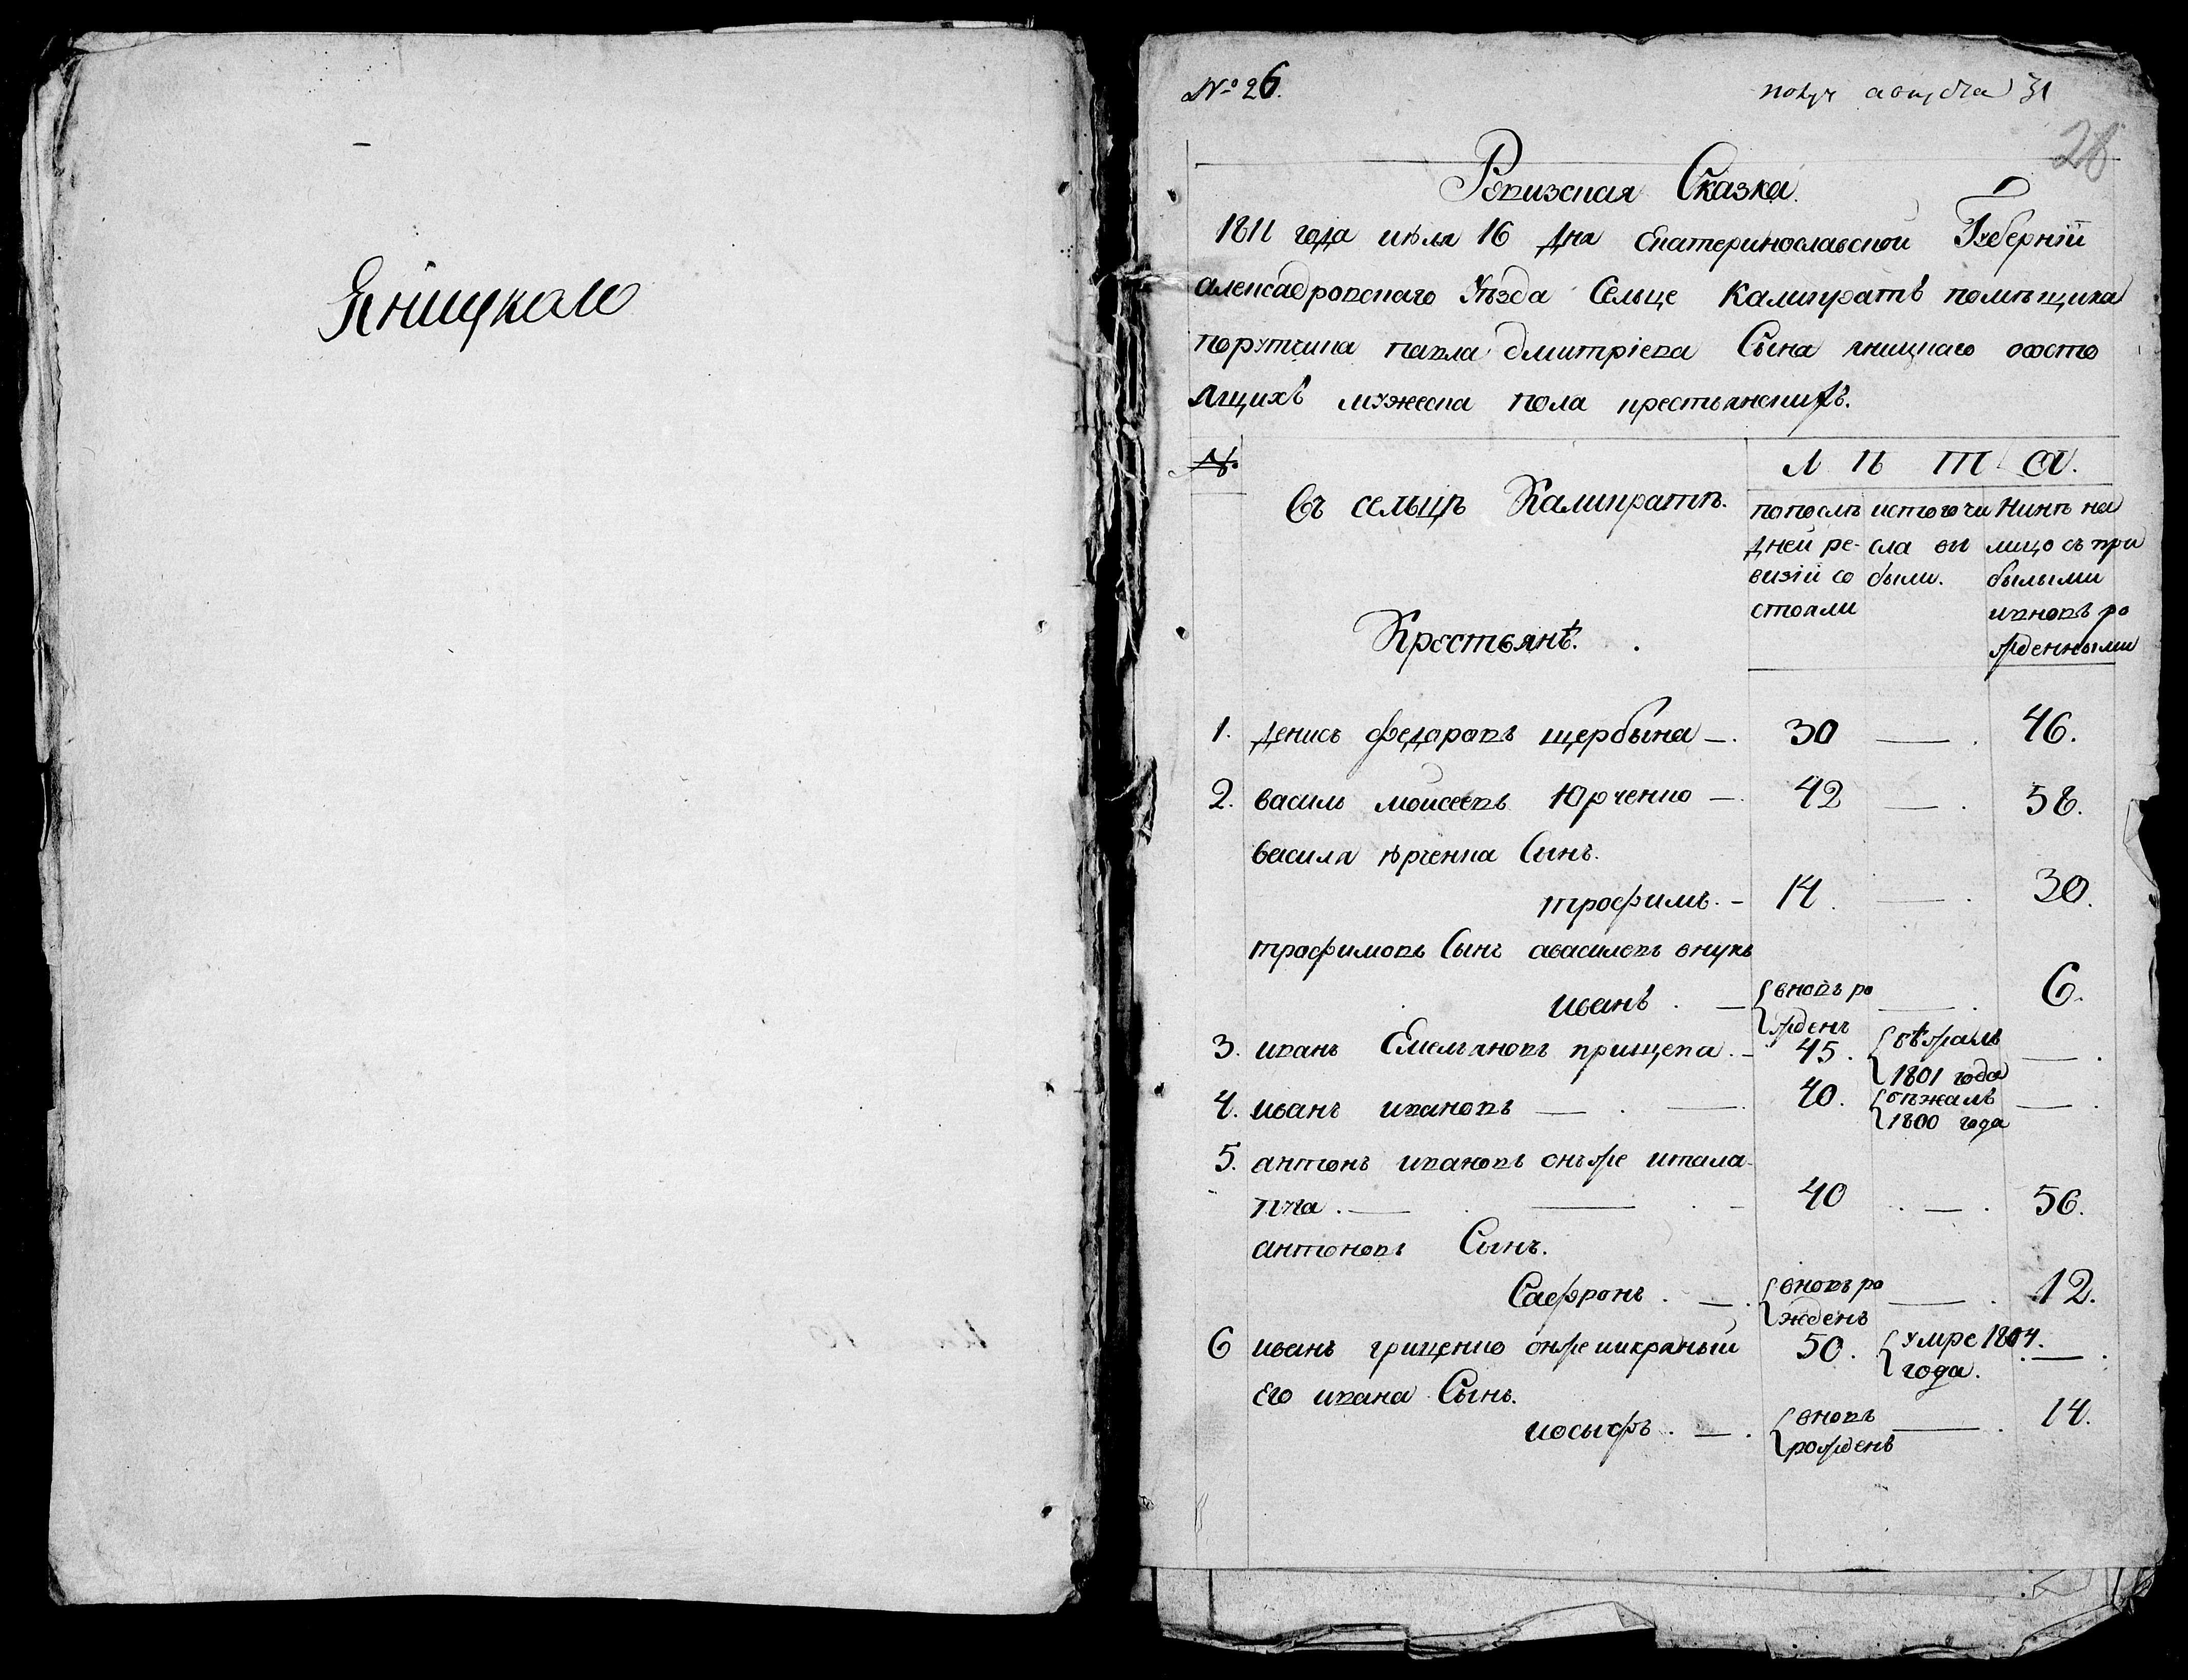 Яницкаго
№ 26.
получ августа 31
28
Ревизская Сказка.
1811 года июля 16 дня Екатеринославской Губернїи
алексадровскаго Уѣзда Сельце Камкратъ помѣщика
порутчика павла дмитрїева Сына яницкаго ососто
ящихъ мужеска пола крестьянснихъ.
№ Лѣта.
Въ сельцѣ Камкратѣ.
попослѣ истого чи Нинѣ на
дней ре- сла вы лицо съ при
визїи со были. былыми
стояли ивновъ ро
жденными
Крестьянѣ.
1. денисъ федоровъ щербына — 30 — 46.
2. василь моисеевъ Юрченко — 42 — 58.
василя юрченка Сынъ.
трофимъ. — 14. — 30.
трофимовъ Сынъ авасилевъ внукъ
иванъ. — вновъ ро — 6.
жденъ
3. иванъ Емельяновъ прищепа. — 45. бѣжалъ —
1801 года
4. иванъ ивановъ — 40. бѣжалъ —
1800 года
5. антонъ ивановъ онъже шала
пута. — 40 — 56.
антоновъ Сынъ.
Сафронъ. — вновъ ро — 12.
жденъ
6 иванъ грищенко онже шкраный 50. умре 1804. —
года.
Его ивана Сынъ.
иосыфъ. — вновъ — 14.
рожденъ